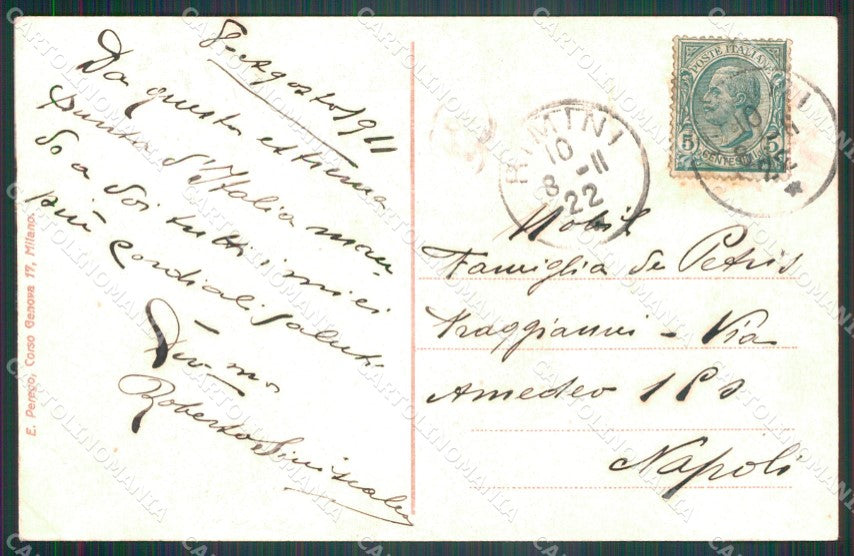 8-Agosto 1911
Da questa estrema
punta d'Italia man
do a Voi tutti i miei
più cordiali saluti
Dev.mo
Roberto
E. Perego, Corso Genova 17, Milano.
POSTE ITALIANE
5 5
RIMINI
10
8-11
22
Nobil
Famiglia de Petris
Fraggianni - Via
Amedeo
Napoli
CARTOLINOMANIA